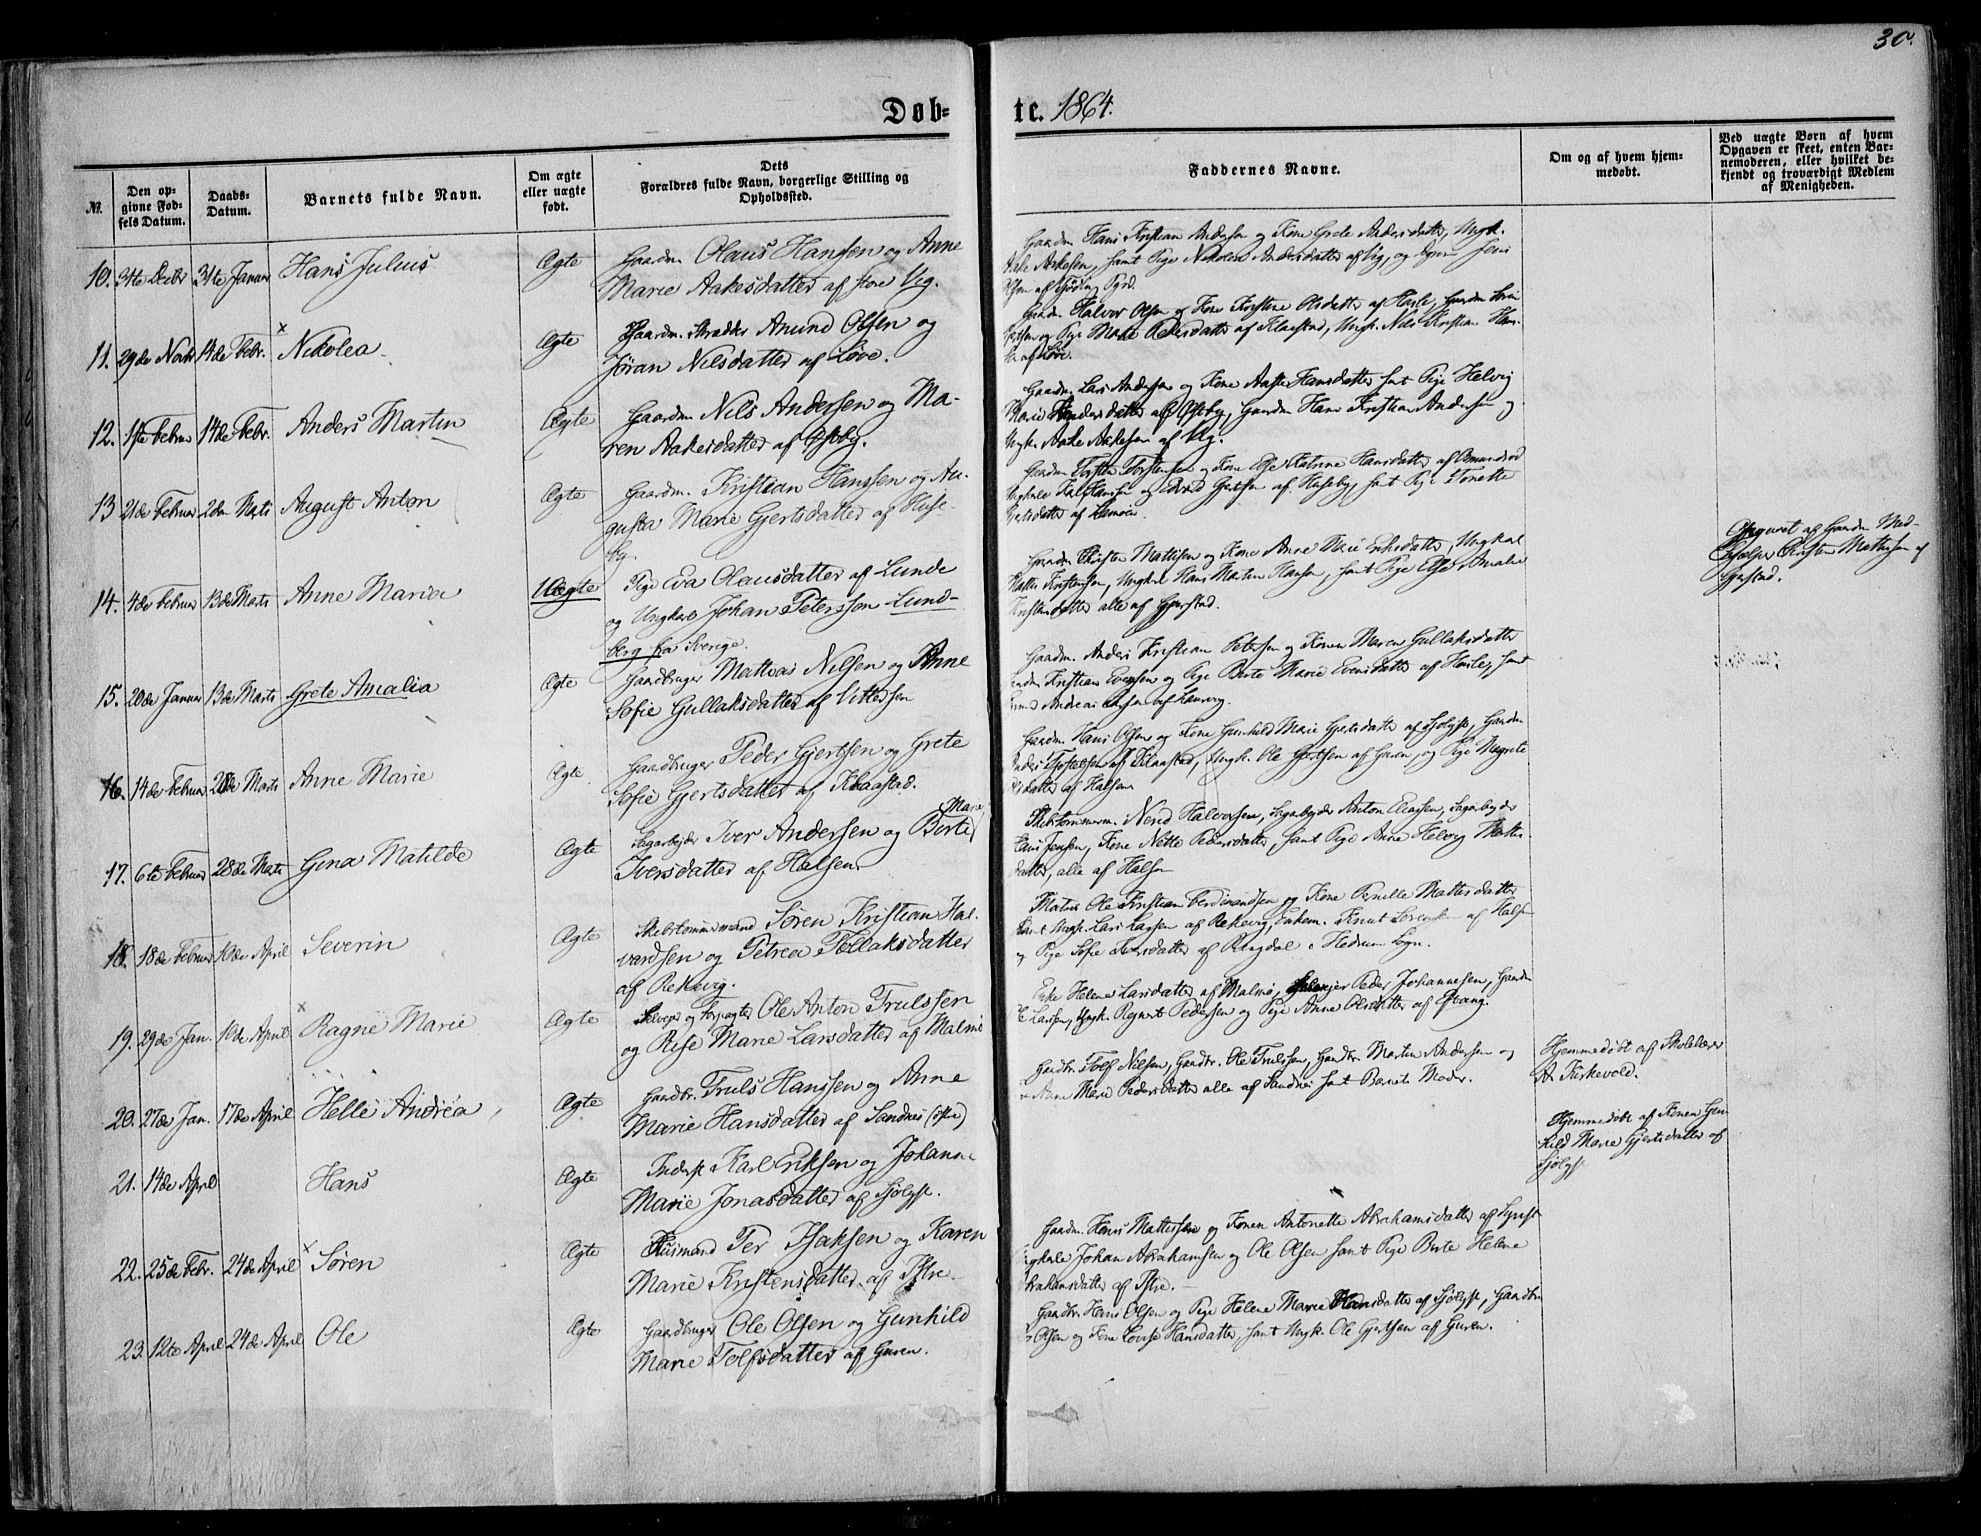 30.
Døb=
te. 1864.
№.
Den op=
givne Fød=
sels Datum.
Daabs=
Datum.
Barnets fulde Navn.
Om ægte
eller uægte
født.
Dets
Forældres fulde Navn, borgerlige Stilling og
Opholdssted.
Faddernes Navne.
Om og af hvem hjem=
medøbt.
Ved uægte Børn af hvem
Opgaven er skeet, enten Bar=
nemoderen, eller hvilket be=
kjendt og troværdigt Medlem
af Menigheden.
10. 31te Decbr 31te Januar Hans Julius Ægte Gaardm. Olaus Hansen og Anne
Marie Aakesdatter af store Veg.
Gaardm. Hans Kristian Andersen og Kone Grete Andersdatter, Ungk.
Aake Aakesen, samt Pige Nikoline Andersdatter af Vig, og Jens
Olsen af
11. 29de Novbr 14de Febr. Nikolea Ægte Gaardm. Skrædder Amund Olsen og
Jøran Nilsdatter af Løve.
Gaardm. Halvor Olsen og Kone Kristine Olsdatter af Hasle, Gaardm.
og Pige Maria Pedersdatter af Klaastad, Ungk. Nils Kristian Han-
af Løve.
12. 1ste Februar 14de Febr. Anders Martin Ægte Gaardm. Nils Andersen og Ma-
ren Aakesdatter af Østeby.
Gaardm. Lars Andersen og Kone Aaste Hansdatter samt Pige Helvig
Marie Andersdatter af Østeby, Gaardm. Hans Kristian Andersen og
Ungk. Aake Aakesen af Vig.
13 21de Februar 2den Marts August Anton Ægte Gaardm. Kristian Hanssen og Au-
gusta Marie Gjertsdatter af Huse-
by.
Gaardm. Torsten Torstensen og Kone Else Katrine Hansdatter af Omundrød
Ungkarle Karl Hansen og Gjertsen af Huseby, samt Pige Tonette
Gjertsdatter af
14. 4de Februar 13de Marts Anne Maria Uægte Pige Eva Olausdatter af Lunde
og Ungkarl Johan Petersson Lund-
berg fra Sverige.
Gaardm. Kristen Mattisen og Kone Anne Marie Eriksdatter, Ungkarl
Mattis Kristensen, Ungkarl Hans Martin Hansen, samt Pige Else Amalie
Kristensdatter alle af Gjerstad.
Opgivet af Gaardm. Med-
hjælper Kristen Mathisen af
Gjerstad.
15. 20de Januar 13de Marts Grete Amalia Ægte Gaardbruger Mattias Nilsen og Anne
Sofie Gullaksdatter af Vittersen
Gaardm. Anders Kristian Petersen og Konen Maren Gullaksdatter
Kristian Evensen og Pige Berte Marie Evensdatter af Hasle, samt
Andreas Larsen af Laurvig.
16. 14de Februar 28de Marts Anne Marie Ægte Gaardbruger Peder Gjertsen og Grete
Sofie Gjertsdatter af Klaastad.
Gaardm. Hans Olsen og Kone Gunhild Marie Gjertsdatter af Sjølyst, Gaardm.
af Klaastad, Ungk. Ole Gjertsen af Guren, og Pige
af Halsen
17. 6te Februar 28de Marts Gina Matilde Ægte Sagarbejder Iver Andersen og Berte Marie
Iversdatter af Halsen
Skibstømmerm. Halvorsen, Sagarbejder Anton Eliassen, Sagarbejder
Jensen, Kone Nette Pedersdatter, samt Pige Anne Helvig Matis-
datter, alle af Halsen
18. 18de Februar 10de April Severin Ægte Skibstømmermand Søren Kristian Hal-
vardsen og Petrea Tollaksdatter
af Rekkevig.
Matros Ole Kristian Ferdinandsen og Kone Pernille Mattisdatter
samt Ungk. Lars Larsen af Rekkevig, Enkem. Knut af Halsen
og Pige Sofie Iversdatter af Ringdal i Hedrum Sogn.
19. 29de Jan. 10de April Ragne Marie Ægte Selvejer og Forpagter Ole Anton Trulssen
og Rise Marie Larsdatter af Malmø
Enke Helene Larsdatter af Malmø, Selvejer Peder Johannesen, Gaardm.
Larsen, Ungk. Regnert Pedersen og Pige Anne Olsdatter af Østrang.
20. 27de Jan. 17de April Helle Andrea Ægte Gaardbr. Truls Hanssen og Anne
Marie Hansdatter af Sandnes (østre)
Gaardbr. Tolf Nilsen, Gaardbr. Ole Trulssen, Gaardbr. Martin Andersen og
Anne Marie Pedersdatter alle af Sandnes samt Barnets Moder.
Hjemmedøbt af Skolelærer
A. Kirkevold.
21. 14de April Hans Ægte Inderst Karl Eriksen og Johanne
Marie Jonasdatter af Sjølyst.
Hjemmedøbt af Konen Gun-
hild Marie Gjertsdatter af
Sjølyst
22. 25de Febr. 24de April Søren Ægte Husmand Per Isaksen og Karen
Marie Kristensdatter af Istre.
Gaardm. Hans Mattissen og Konen Antonette Abrahamsdatter af
Ungkarle Johan Abrahamsen og Ole Olsen samt Pige Berte Helene
Abrahamsdatter af Istre.
23. 12te April 24de April Ole Ægte Gaardbruger Ole Olsen og Gunhild
Marie Tolfsdatter af Guren.
Gaardbr. Hans Olsen og Pige Helene Marie Hansdatter af Sjølyst, Gaardbr.
Olsen og Kone Lovise Hansdatter, samt Ungk. Ole Gjertsen af Guren.